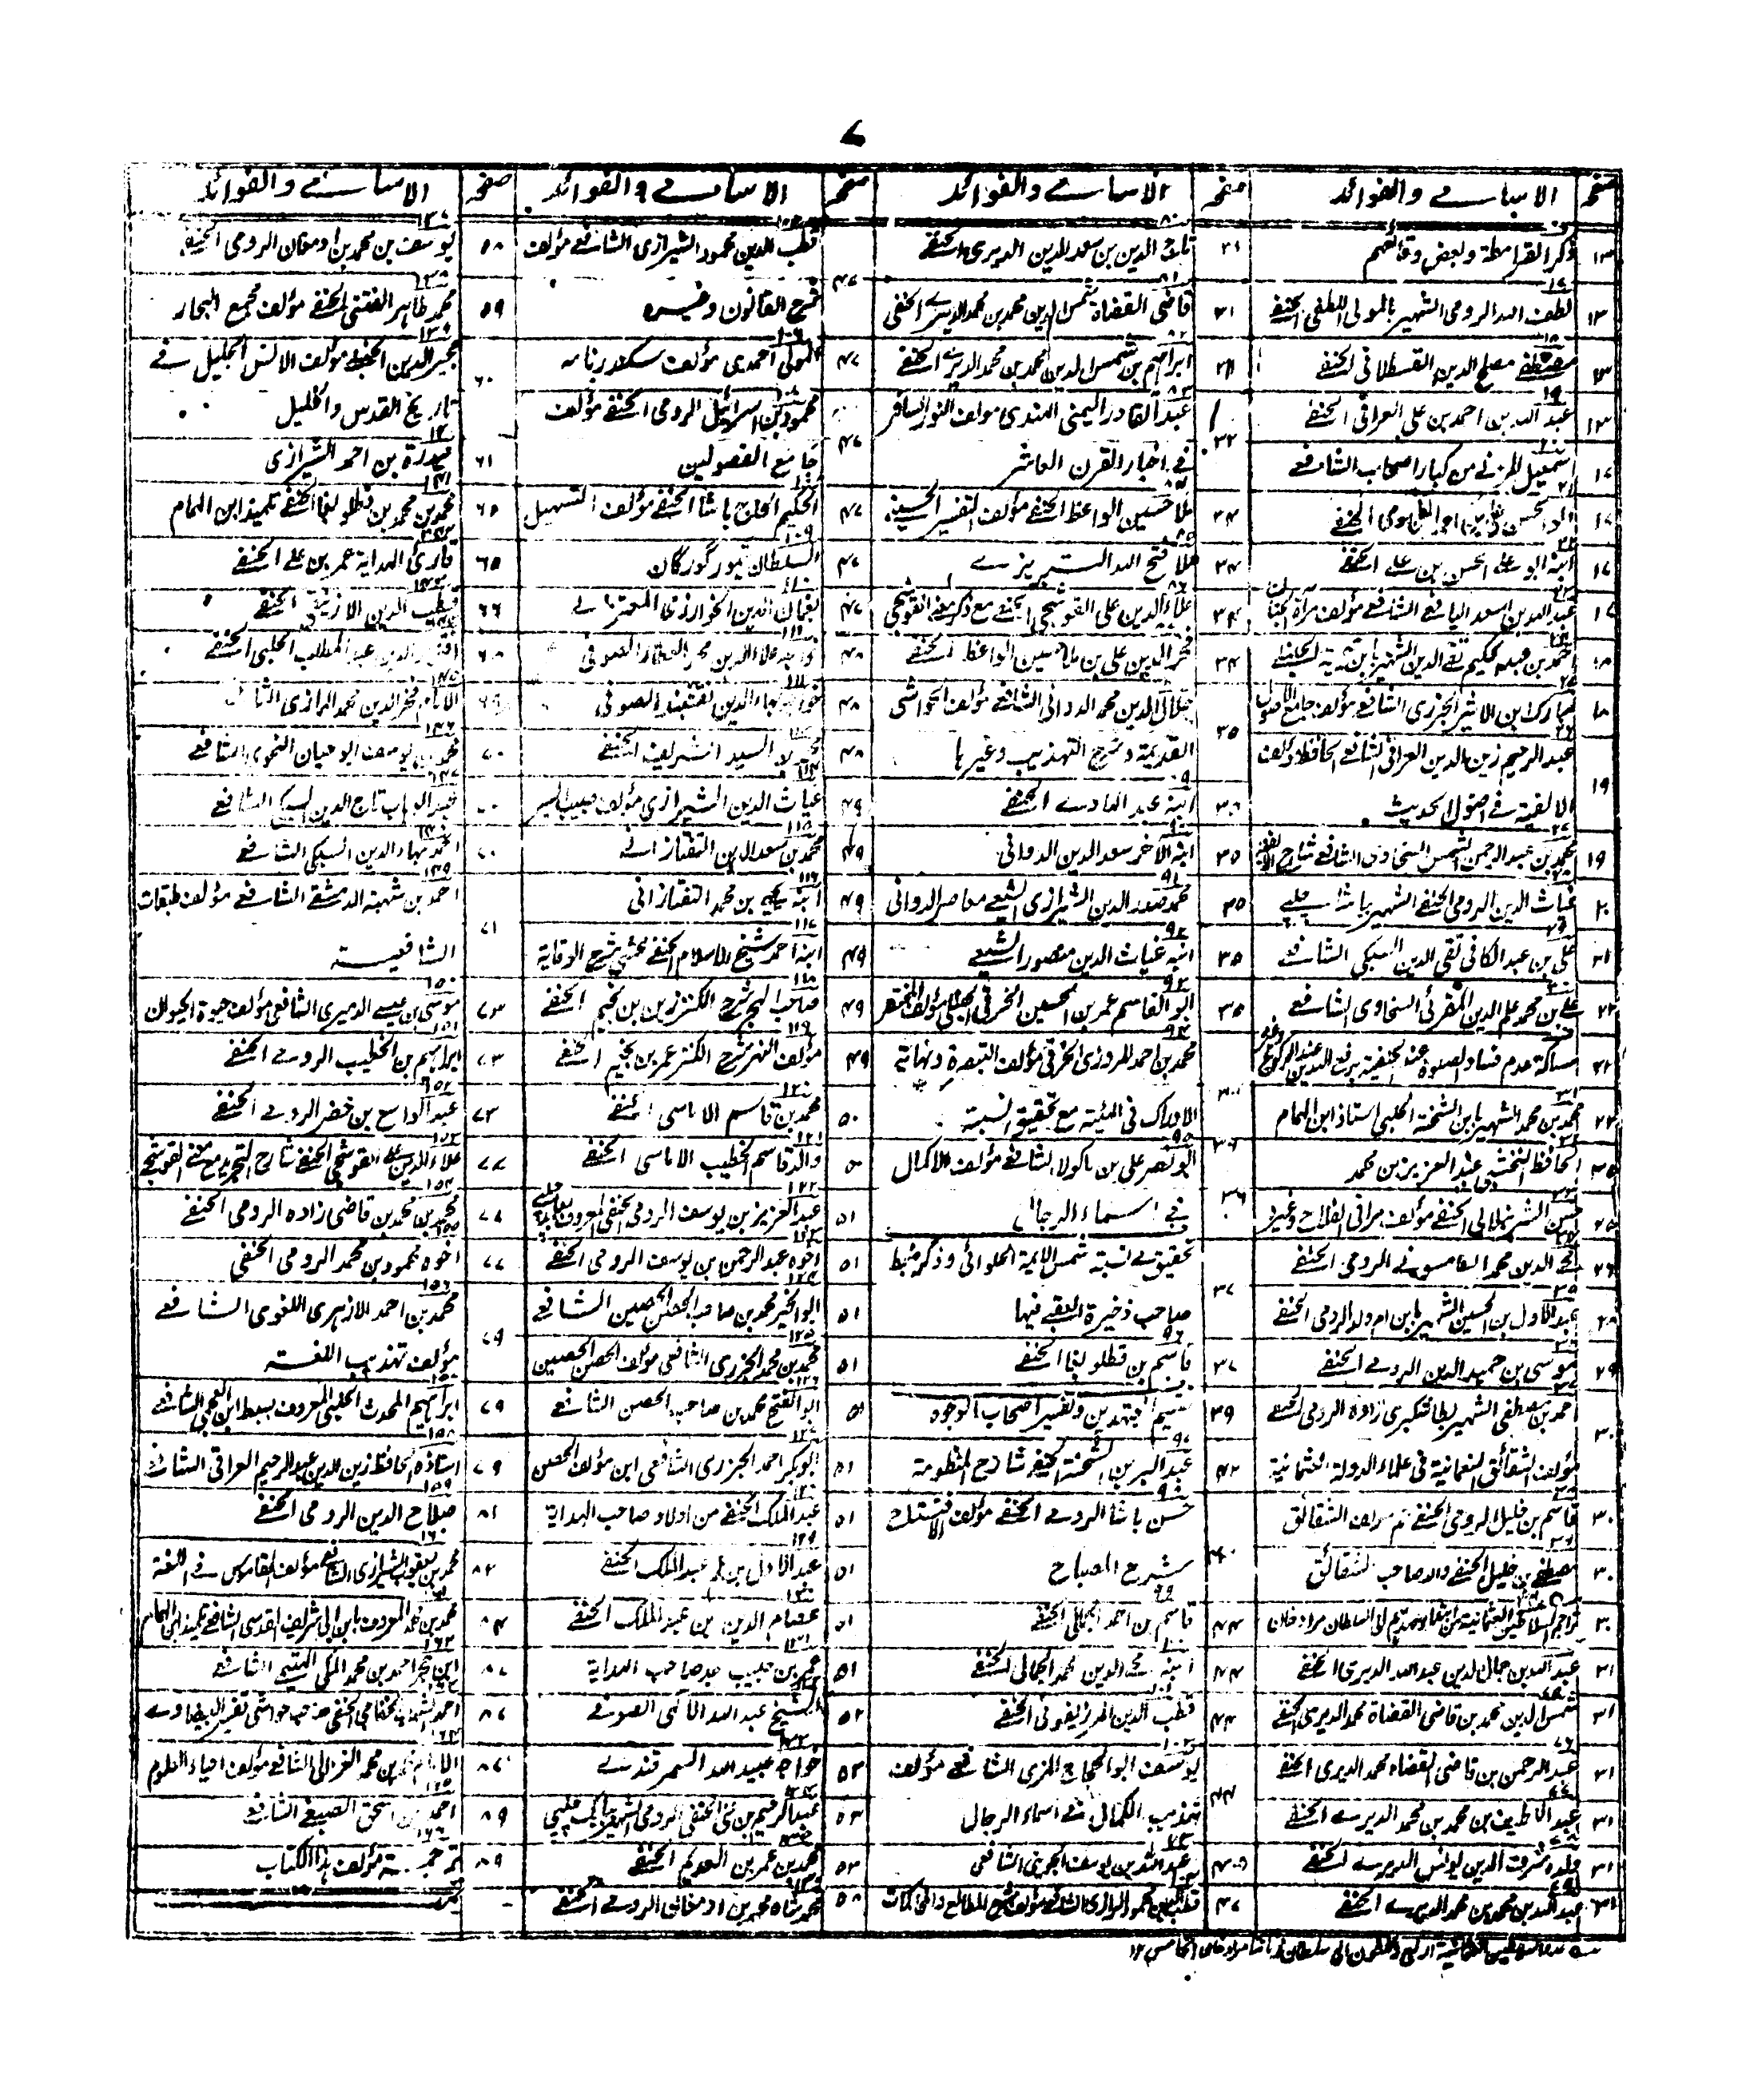 صفحہ الاسامی والفوائد
۱۳ ذکر القرامطة وبعض وقائعهم
۱۳ لطف الله الرومی الشهیر بالمولی اللطفی الحنفی
۱۳ مصطفی مصلح الدین القسطلانی الحنفی
۱۳ عبد الله بن احمد بن علی العراقی الحنفی
۱۷ اسمعیل المزنی من کبار اصحاب الشافعی
۱۷ ابنه ابو علی الحسن بن علی الحنفی
۱۷ عبد الله بن اسعد الیافعی الشافعی مؤلف مرآة الجنان
۱۸ احمد بن عبد الحلیم تقی الدین الشهیر بابن تیمیة الحنبلی
۱۸ مبارک ابن الاثیر الجزری الشافعی مؤلف جامع الاصول
۱۹ عبد الرحیم زین الدین العراقی الشافعی الحافظ مؤلف
الالفیة فی اصول الحدیث
۱۹ محمد بن عبد الرحمن الشمس السخاوی الشافعی شارح الالفیة
۲۰ غیاث الدین الرومی الحنفی الشهیر بپاشا چلپی
۲۱ علی بن عبد الکافی تقی الدین السبکی الشافعی
۲۲ علی بن محمد علم الدین المقرئ السخاوی الشافعی
۲۲ مسألة عدم فساد الصلوة عند الحنفیة برفع الیدین عند الرکوع وغیره
۲۲ محمد بن محمد الشهیر بابن الشحنة الحلبی استاذ ابن الهمام
۲۵ الحافظ النخشبی عبد العزیز بن محمد
۲۵ حسن الشرنبلالی الحنفی مؤلف مراقی الفلاح وغیره
۲۶ محیی الدین محمد السامسونی الرومی الحنفی
۲۸ عبد الاول بن الحسین الشهیر بابن ام ولد الرومی الحنفی
۲۹ موسی بن حمید الدین الرومی الحنفی
۳۰ احمد بن مصطفی الشهیر بطاشکبری زاده الرومی الحنفی
مؤلف الشقائق النعمانیة فی علماء الدولة العثمانیة
۳۰ قاسم بن خلیل الرومی الحنفی عم مؤلف الشقائق
۳۰ مصطفی بن خلیل الحنفی والد صاحب الشقائق
۳۱ عبد الله بن جمال الدین عبد الله الدیری الحنفی
۳۱ شمس الدین محمد بن قاضی القضاة محمد الدیری الحنفی
۳۱ عبد الرحمن بن قاضی القضاة محمد الدیری الحنفی
۳۱ عبد اللطیف بن محمد بن محمد الدیری الحنفی
۳۱ ولده شرف الدین یونس الدیری الحنفی
۳۱ عبد الله بن محمد بن محمد الدیری الحنفی
صفحہ الاسامی والفوائد
۳۱ تاج الدین بن سعد الدین الدیری الحنفی
۳۱ قاضی القضاة شمس الدین محمد بن محمد الدیری الحنفی
۳۱ ابراهیم بن شمس الدین محمد بن محمد الدیری الحنفی
۳۳ عبد القادر الیمنی الهندی مؤلف النور السافر
فی اخبار القرن العاشر
۳۴ ملا حسین الواعظ الحنفی مؤلف التفسیر الحسینی
۳۴ ملا فتح الله التبریزی
۳۴ علاء الدین علی القوشجی الحنفی مع ذکر معنی القوشجی
۳۴ فخر الدین علی بن ملا حسین الواعظ الحنفی
۳۵ جلال الدین محمد الدوانی الشافعی مؤلف الحواشی
القدیمة وشرح التهذیب وغیرها
ابنه عبد الهادی الحنفی
۳۵ ابنه الآخر سعد الدین الدوانی
۳۵ محمد صدر الدین الشیرازی الشیعی معاصر الدوانی
۳۵ ابنه غیاث الدین منصور الشیعی
۳۵ ابو القاسم عمر بن الحسین الخرقی الحنبلی مؤلف المختصر
محمد بن احمد المروزی الخرقی مؤلف التبصرة ونهایة
الادراک فی الهیئة مع تحقیق النسبة
۳۶ ابو نصر علی بن ماکولا الشافعی مؤلف الاکمال
فی اسماء الرجال
۳۷ تحقیق فی نسبة شمس الایمة الحلوائی وذکر ضبط
صاحب ذخیرة العقبی فیها
۳۷ قاسم بن قطلوبغا الحنفی
۳۹ تقسیم المجتهدین وتفسیر اصحاب الوجوه
۴۲ عبد البر بن الشحنة الحنفی شارح المنظومة
حسن پاشا الرومی الحنفی مؤلف الافتتاح
شرح المصباح
۴۴ قاسم بن احمد الجمالی الحنفی
۴۴ ابنه محیی الدین محمد الجمالی الحنفی
۴۴ قطب الدین المرزیفونی الحنفی
۴۴ یوسف ابو الحجاج المزی الشافعی مؤلف
تهذیب الکمال فی اسماء الرجال
۴۵ عبد الله بن یوسف الجوینی الشافعی
صفحہ الاسامی والفوائد
۴۷ قطب الدین محمود الشیرازی الشافعی مؤلف
شرح القانون وغیره
۴۷ المولی احمدی مؤلف سکندر نامه
۴۷ محمود بن اسرائیل الرومی الحنفی مؤلف
جامع الفصولین
۴۷ الحکیم الحاج پاشا الحنفی مؤلف التسهیل
۴۷ السلطان تیمور گورکان
۴۷ نعمان الدین الخوارزمی المعتزلی
۴۸ خواجه علاء الدین محمد العطار الصوفی
۴۸ خواجه بهاء الدین نقشبند الصوفی
۴۸ السید الشریف الحنفی
۴۹ غیاث الدین الشیرازی مؤلف حبیب السیر
۴۹ محمد بن سعد الدین التفتازانی
۴۹ ابنه یحیی بن محمد التفتازانی
۴۹ ابنه احمد شیخ الاسلام الحنفی محشی شرح الوقایة
۴۹ صاحب البحر شرح الکنز زین بن نجیم الحنفی
۴۹ مؤلف النهر شرح الکنز عمر بن نجیم الحنفی
۵۰ محمد بن قاسم الاماسی الحنفی
۵۰ والده قاسم الخطیب الاماسی الحنفی
۵۱ عبد العزیز بن یوسف الرومی الحنفی المعروف بعابد چلپی
۵۱ اخوه عبد الرحمن بن یوسف الرومی الحنفی
۵۱ ابو الخیر محمد بن صاحب الحصن الحصین الشافعی
۵۱ محمد بن محمد الجزری الشافعی مؤلف الحصن الحصین
۵۱ ابو الفتح محمد بن صاحب الحصن الشافعی
۵۱ ابو بکر احمد الجزری الشافعی ابن مؤلف الحصن
۵۱ عبد الملک الحنفی من اولاد صاحب الهدایة
۵۱ عبد الاول بن عبد الملک الحنفی
۵۱ عصام الدین بن عبد الملک الحنفی
۵۱ عمر بن حبیب جد صاحب الهدایة
۵۲ الشیخ عبد الله الالهی الصوفی
۵۳ خواجه عبید الله السمرقندی
۵۳ محمد بن عمر بن العدیم الحنفی
۵۸ محمد شاه محمد بن ارمغانی الرومی الحنفی
صفحہ الاسامی والفوائد
۵۸ یوسف بن محمد بن ارمغان الرومی الحنفی
۵۹ محمد طاهر الفتنی الحنفی مؤلف مجمع البحار
۶۰ مجیر الدین الحنبلی مؤلف الانس الجلیل فی
تاریخ القدس والخلیل
۶۱ حیدرة بن احمد الشیرازی
۶۵ محمد بن محمد بن قطلوبغا الحنفی تلمیذ ابن الهمام
۶۵ قارئ الهدایة عمر بن علی الحنفی
۶۶ قطب الدین الازنیقی الحنفی
۶۸ افتخار الدین عبد المطلب الحلبی الحنفی
۶۹ الامام فخر الدین محمد الرازی الشافعی
۷۰ محمد بن یوسف ابو حیان النحوی الشافعی
۷۰ عبد الوهاب تاج الدین السبکی الشافعی
۷۰ احمد بهاء الدین السبکی الشافعی
۷۱ احمد بن شهبة الدمشقی الشافعی مؤلف طبقات
الشافعیة
۷۳ موسی بن عیسی الدمیری الشافعی مؤلف حیوة الحیوان
۷۳ ابراهیم بن الخطیب الرومی الحنفی
۷۳ عبد الواسع بن خضر الرومی الحنفی
۷۷ علاء الدین علی القوشجی الحنفی شارح التجرید مع معنی القوشجی
۷۷ محمد بن محمد بن قاضی زاده الرومی الحنفی
۷۷ اخوه محمود بن محمد الرومی الحنفی
۷۹ محمد بن احمد الازهری اللغوی الشافعی
مؤلف تهذیب اللغة
۷۹ ابراهیم المحدث الحلبی المعروف بسبط ابن العجمی الشافعی
۷۹ استاذه الحافظ زین الدین عبد الرحیم العراقی الشافعی
۸۱ صلاح الدین الرومی الحنفی
۸۲ محمد بن یعقوب الشیرازی الشافعی مؤلف القاموس فی اللغة
۸۴ محمد بن محمد المعروف بابن ابی شریف القدسی الشافعی تلمیذ ابن الهمام
۸۷ ابن حجر احمد بن محمد المکی الهیتمی الشافعی
۸۷ احمد شهاب الخفاجی الحنفی صاحب حواشی تفسیر البیضاوی
۸۷ الامام محمد بن محمد الغزالی الشافعی مؤلف احیاء العلوم
۸۹ احمد بن اسحق الصبغی الشافعی
۸۹ ترجمة مؤلف هذا الکتاب